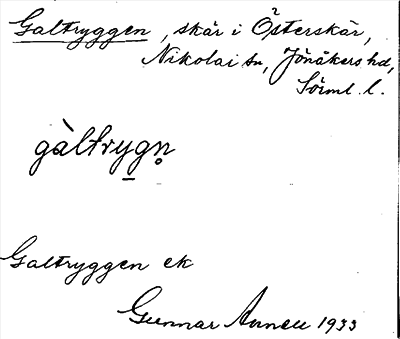 Galtryggen, skär i Österskär,
Nikolai sn, Jönåkers hd,
Sörml. l.
gàltrygn̥
Galtryggen ek
Gunnar 1933